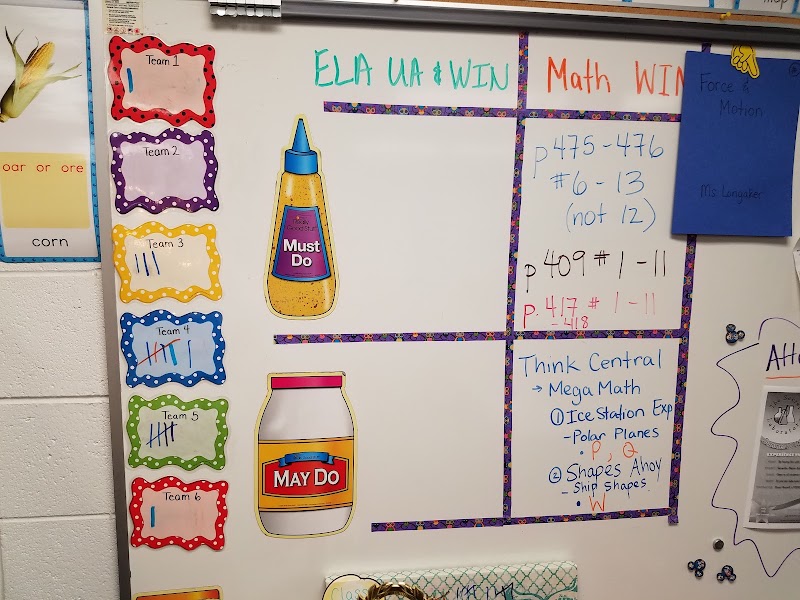 oar or ore
corn
Team 1
Team 2
Team 3
Team 4
Team 5
Team 6
ELA UA & WIN
Math WIN
Must
Do
p 475 - 476
#6 - 13
(not 12)
p 409 # 1 - 11
p. 417 # 1 - 11
- 418
MAY DO
Think Central
→ Mega Math
① Ice Station Exp
- Polar Planes
• P, Q
② Shapes Ahoy
- Ship Shapes
• W
Force &
Motion
Ms. Langaker